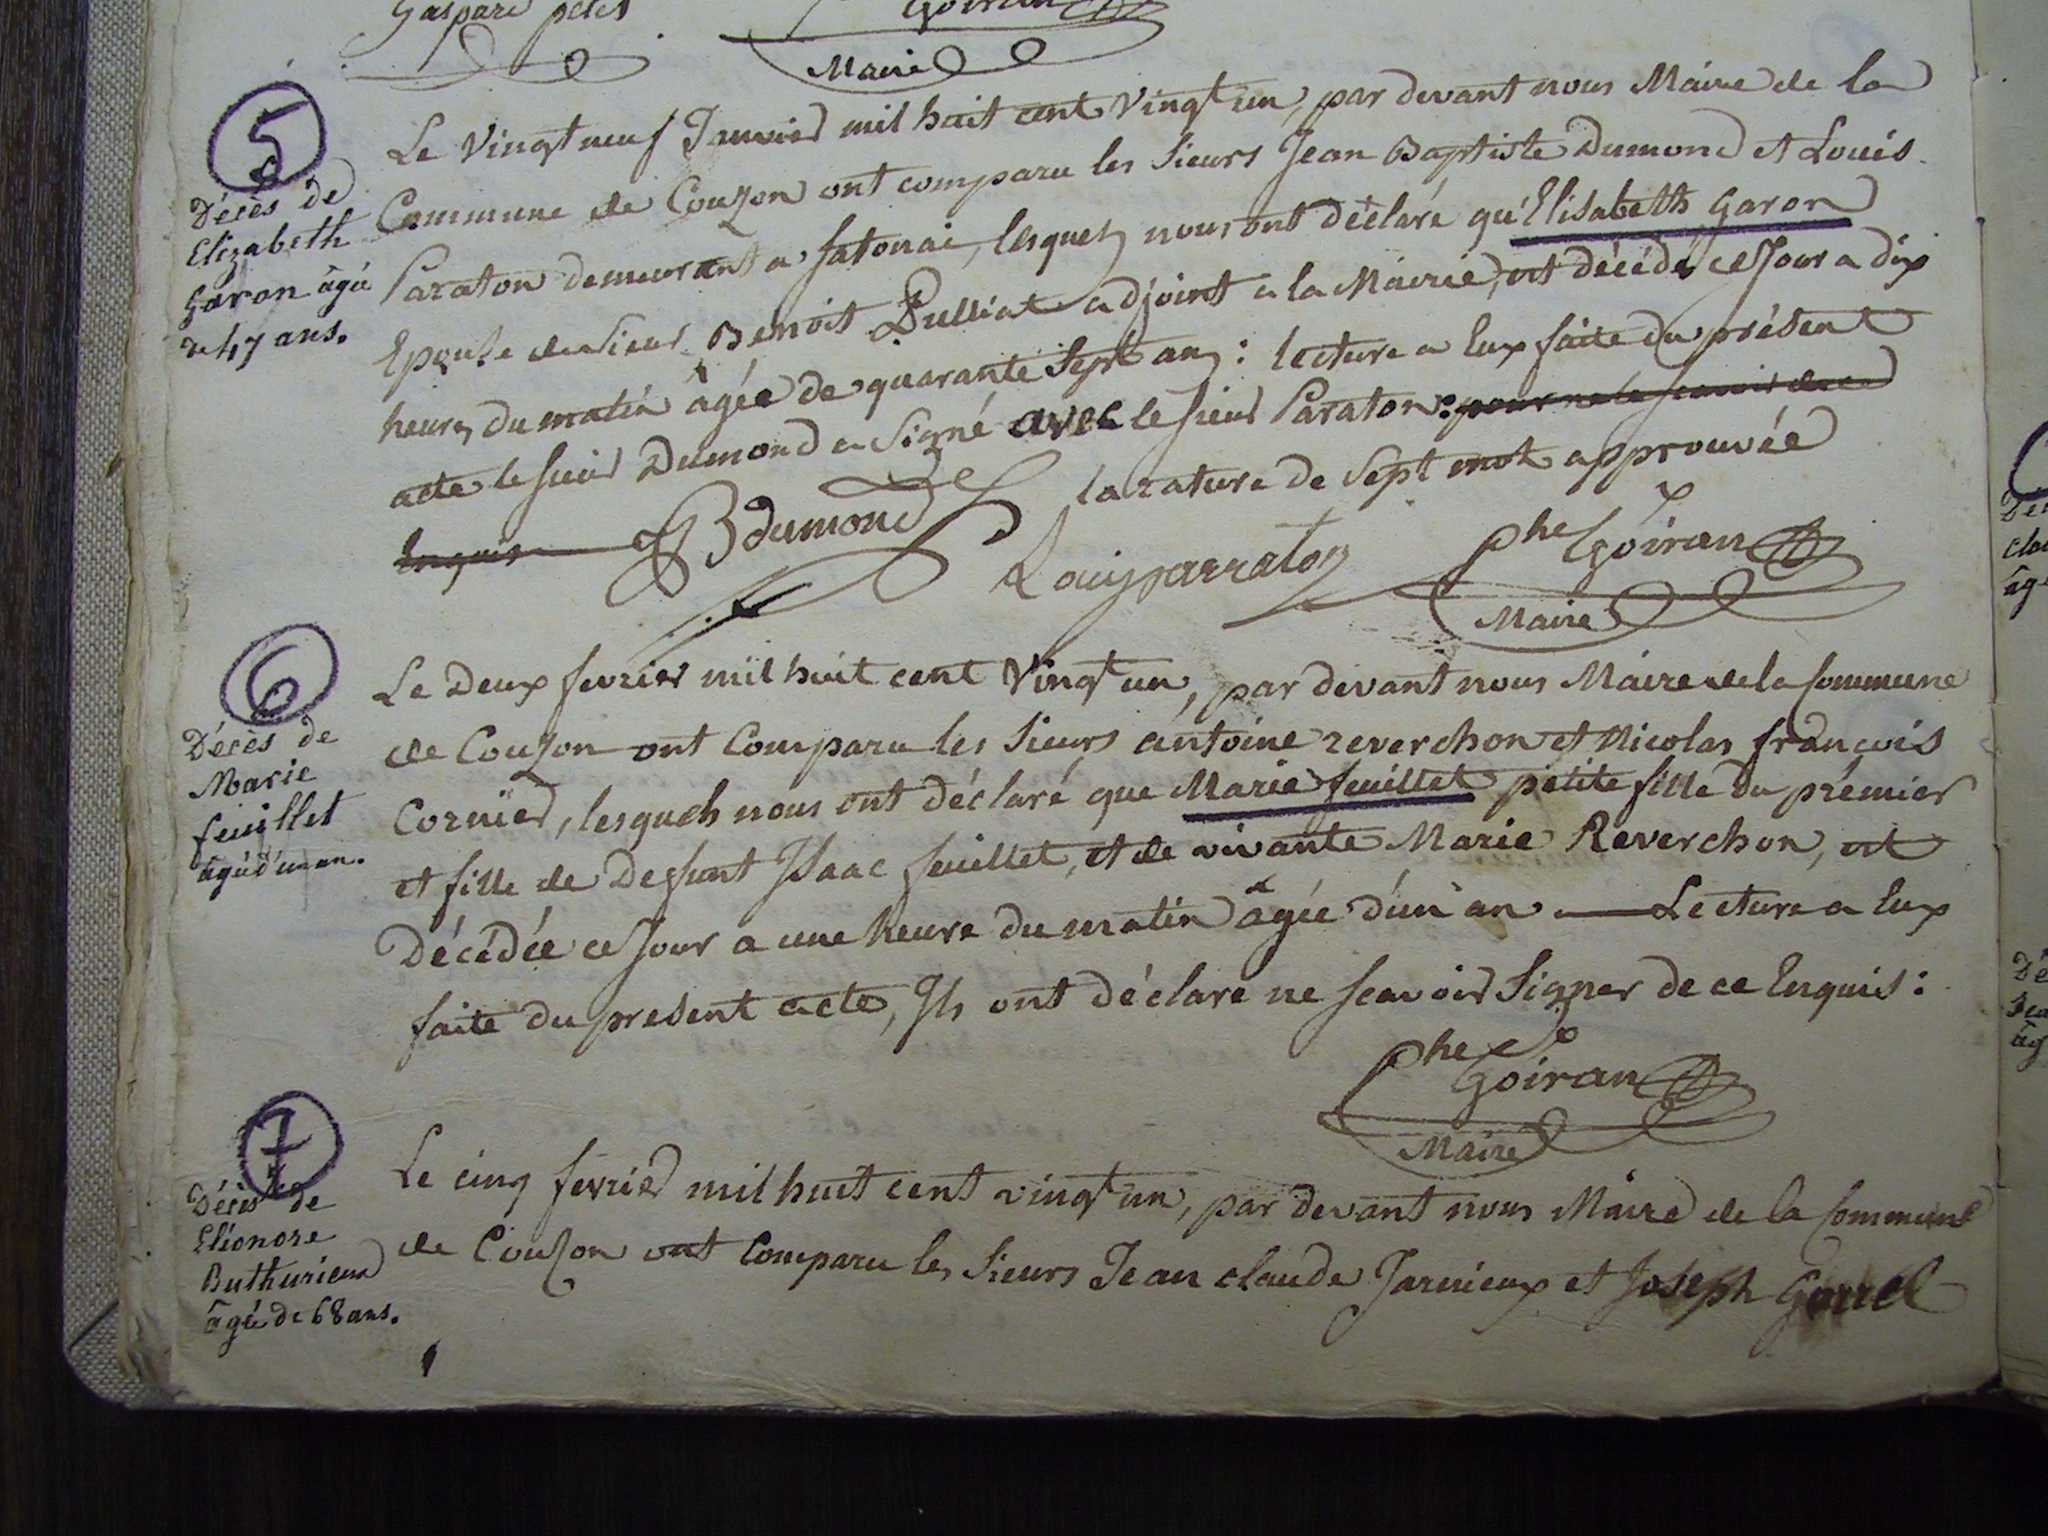 Gaspard petet
Goiran
Maire
5
Décès de
Elizabeth
Garon âgée
de 47 ans.
Le Vingt neuf Janvier mil huit cent Vingt un, par devant nous Maire de la
Commune de Couzon ont comparu les Sieurs Jean Baptiste Dumond et Louis
Paraton demeurant a Satonai, lesquels nous ont déclaré qu'Elisabeth Garon
Epouse de Sieur Benoit Pulliat adjoint a la Mairie, est décédé ce Jour a dix
heures du matin âgée de quarante Sept ans : lecture a Eux faite du présent
acte le sieur Dumond a Signé avec le sieur Paraton. pour ne le scavoir de ce
Enquis
la rature de Sept mots approuvée
JB dumond
Louis parraton
Phe Goiran
Maire
6
Décès de
Marie
feuillet
âgée d'un an.
Le Deux fevrier mil huit cent Vingt un, par devant nous Maire de la Commune
de Couzon ont Comparu les Sieurs antoine reverchon et Nicolas françois
Cornier, lesquels nous ont déclaré que Marie feuillet petite fille du prémier
et fille de Defunt Isaac feuillet, et de vivante Marie Reverchon, est
Décédée ce Jour a une heure du matin âgée d'un an — Lecture a Eux
faite du present acte, Ils ont déclaré ne scavoir Signer de ce Enquis :
Phe Goiran
Maire
7
Décès de
Eléonore
Buthurieux
âgée de 68 ans.
Le cinq fevrier mil huit cent vingt un, par devant nous Maire de la Commune
de Couzon ont Comparu les Sieurs Jean claude Jarnieux et Joseph